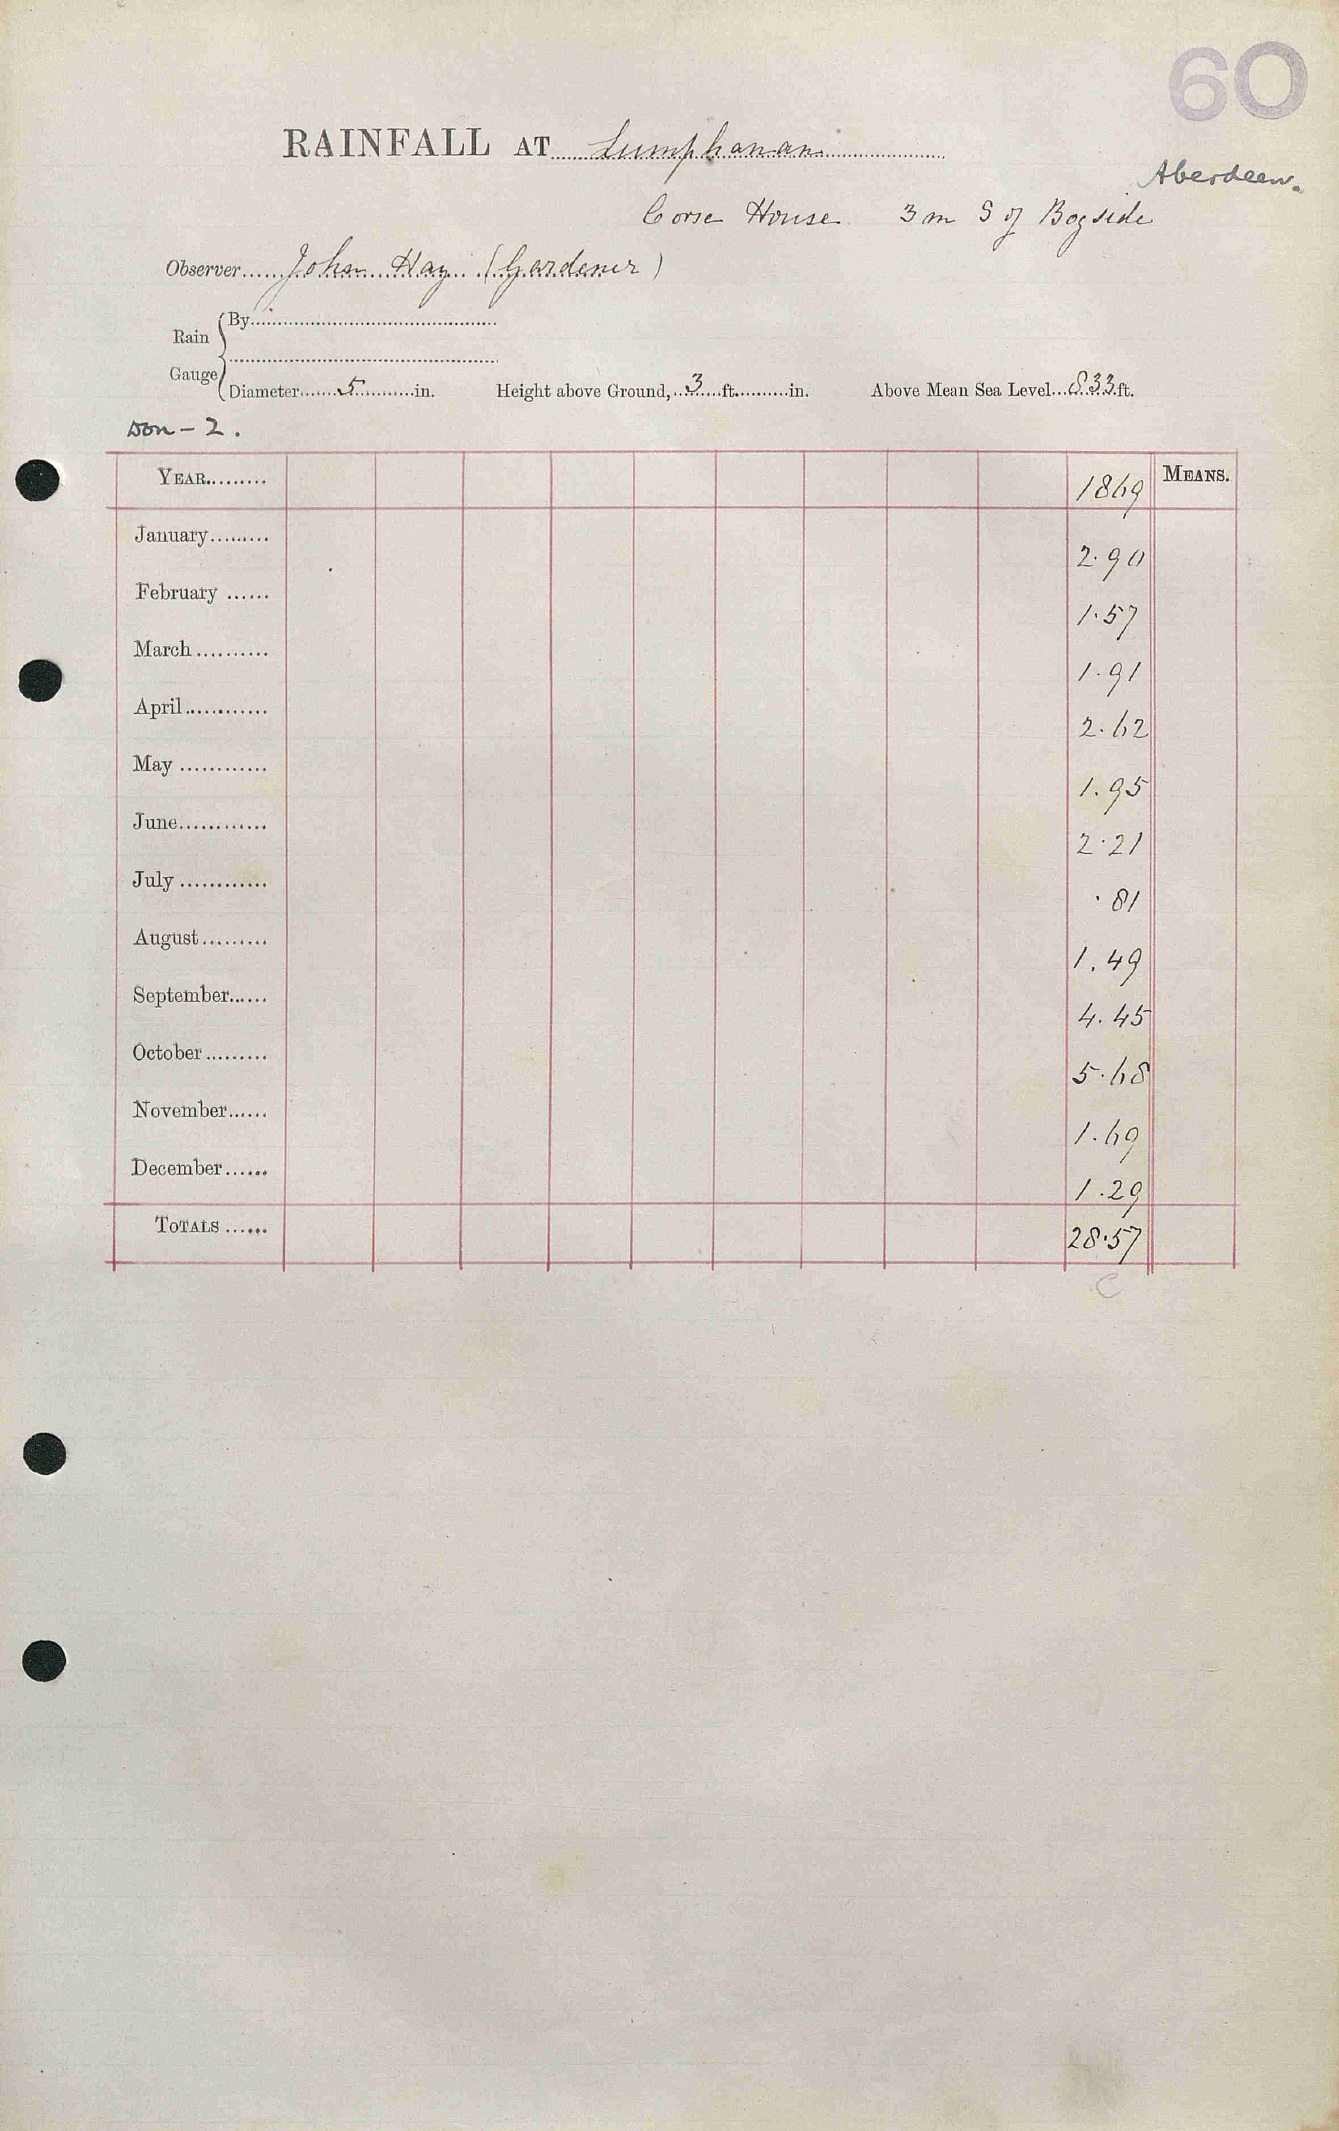 60
RAINFALL AT Lumphanan
Aberdeen.
Corse House 3 m S of Bogside
Observer John Hay (Gardener)
Rain Gauge
By
Diameter 5 in. Height above Ground, 3 ft. in. Above Mean Sea Level 833 ft.
Don - 2.
YEAR 1869 MEANS.
January 2.90
February 1.57
March 1.91
April 2.62
May 1.95
June 2.21
July .81
August 1.49
September 4.45
October 5.68
November 1.69
December 1.29
TOTALS 28.57
C